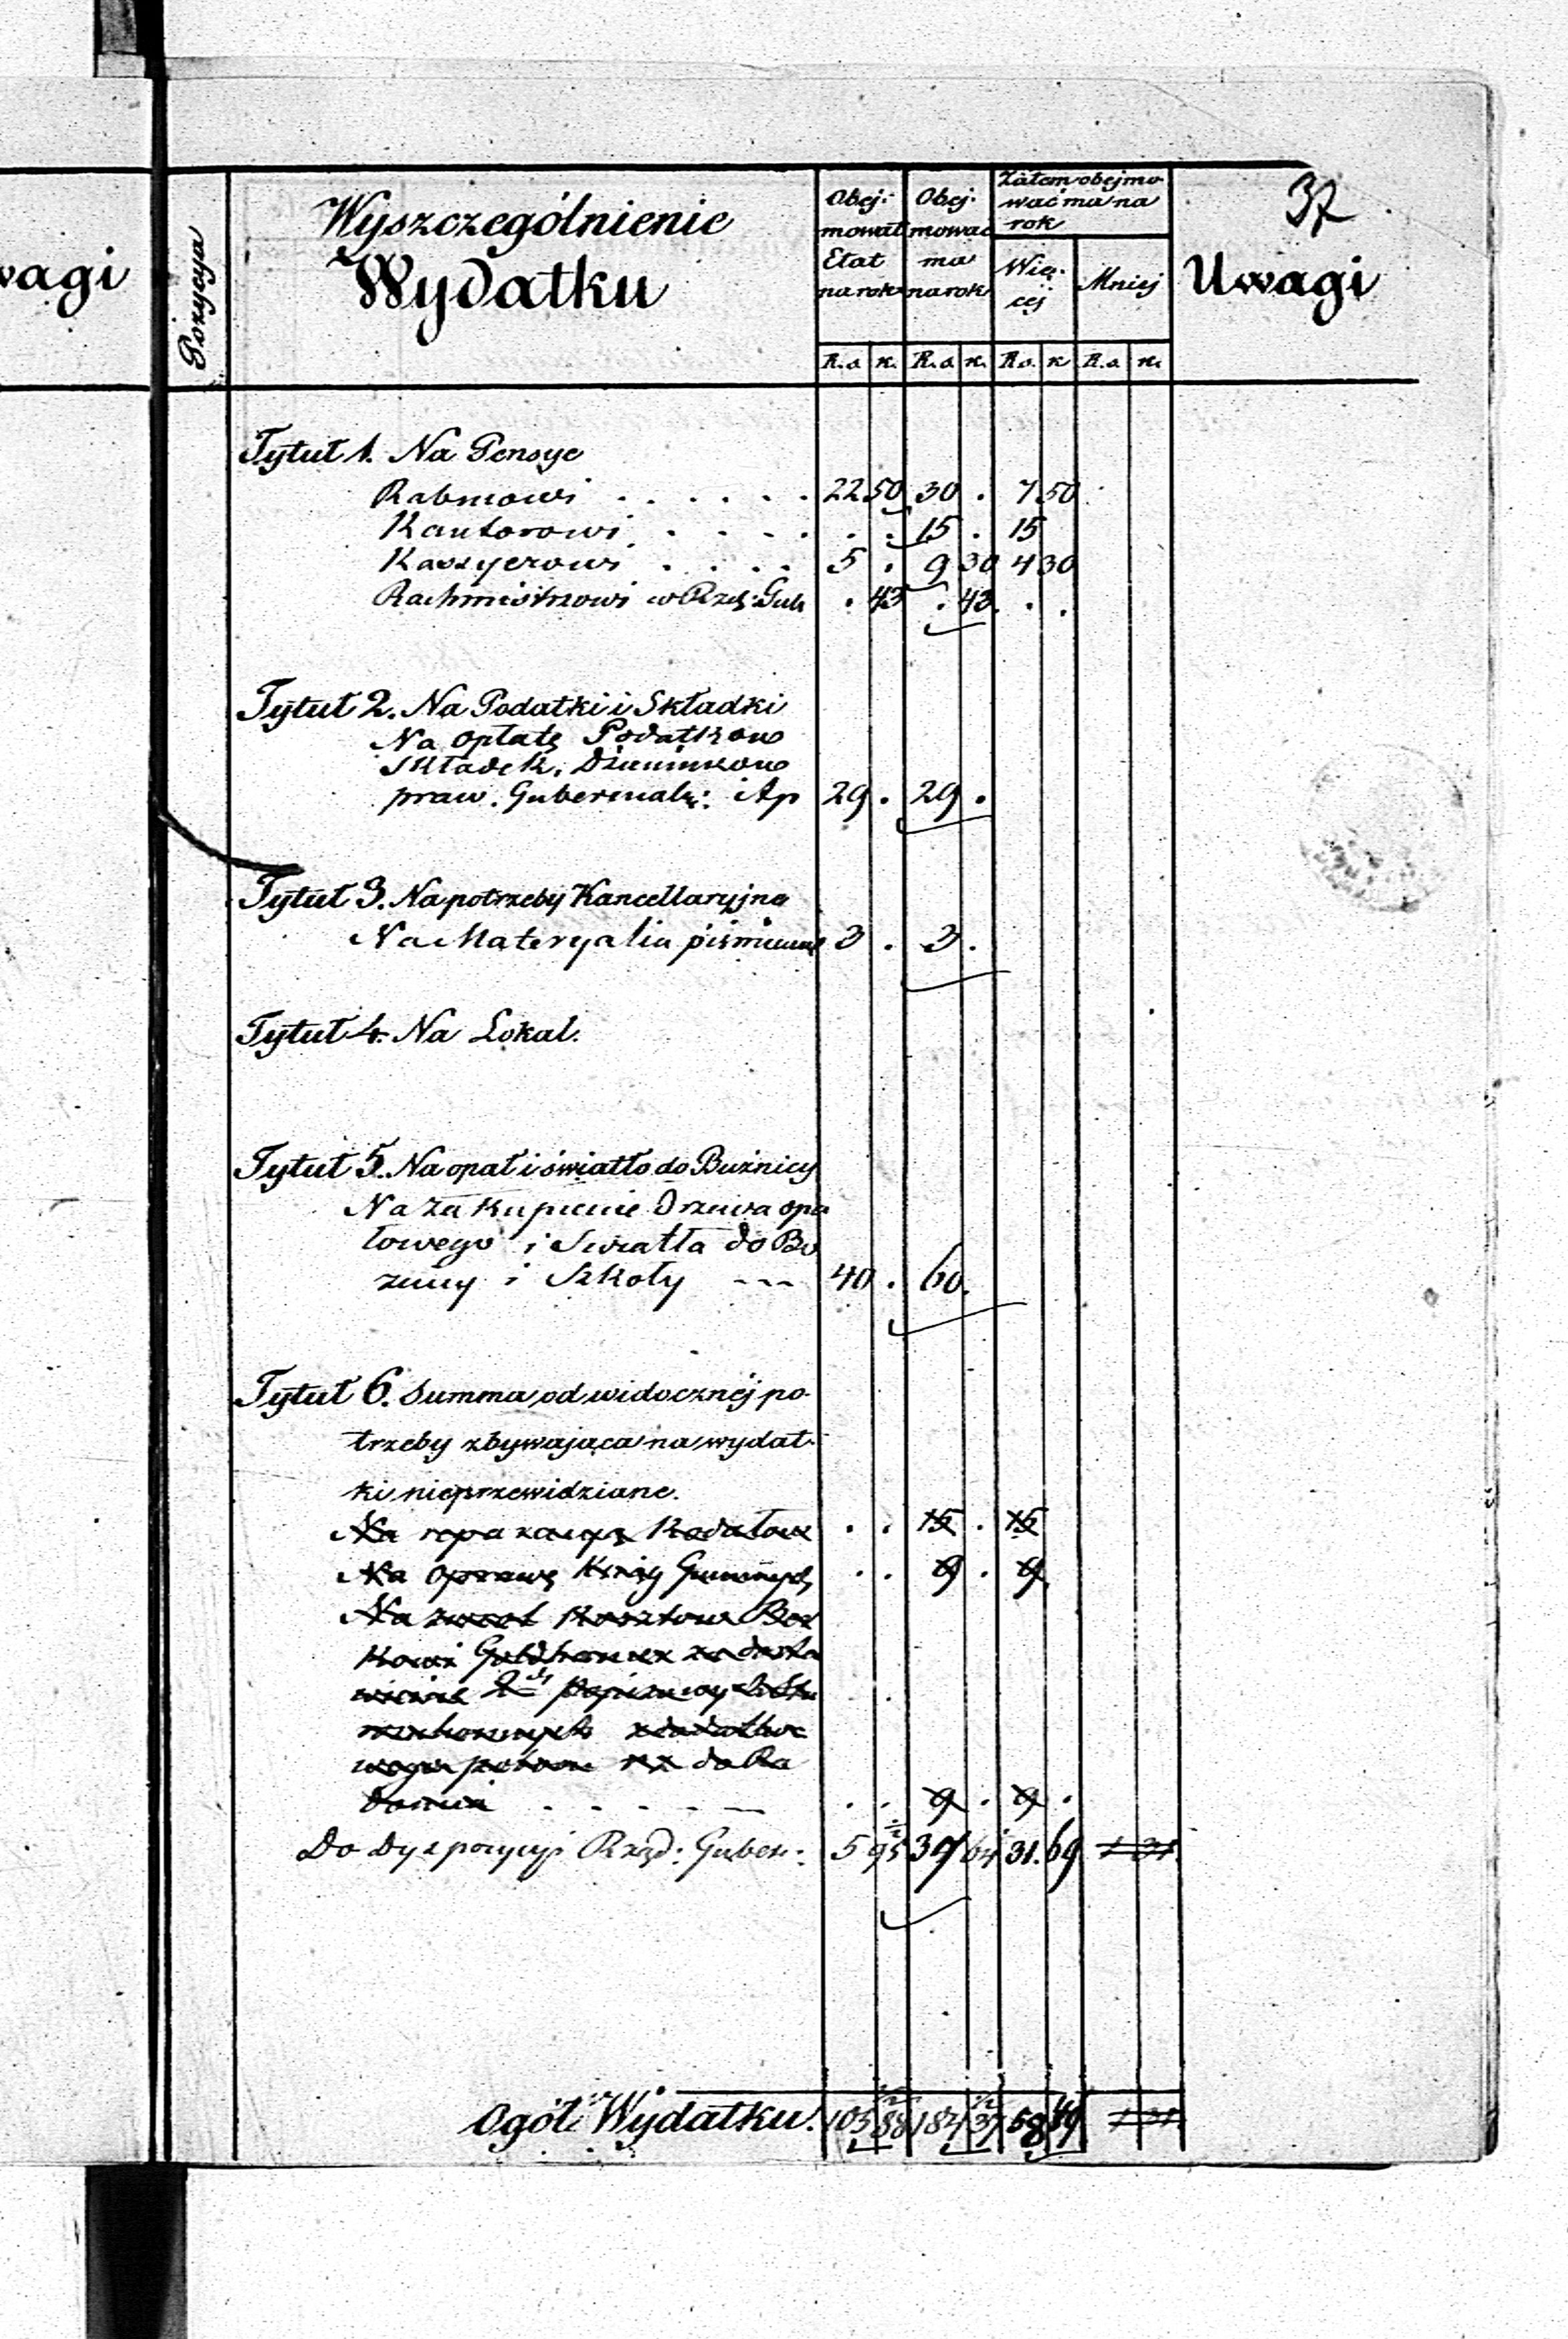 37
wagi
Pozycya
Wyszczególnienie
Wydatku
Obej-
mował
Etat
na rok
Obej-
mować
ma
na rok
Zatem obejmo-
wać ma na
rok
Wię-
cej
Mniej
Uwagi
R.s k. R.s k. R.s. k R.s k.
Tytuł 1. Na Pensye
Rabinowi . . . . . . 22 50 30 . 7 50
Kantorowi . . . . . . 15 . 15
Kassyerowi . . . . 5 . 9 30 4 30
Rachmistrzowi w Rzd: Gub . 43 . 43 . .
Tytuł 2. Na Podatki i Składki
Na opłatę Podatkow
Składek, Dzienników
praw. Gubernial: i Ap 29 . 29 .
Tytuł 3. Na potrzeby Kancellaryjne
Na Materyalia piśmienne 3 . 3 .
Tytuł 4. Na Lokal.
Tytuł 5. Na opał i światło do Buźnicy
Na zakupienie Drzewa opa
łowego i Swiatła do Bo
żnicy i Szkoły --- 40 . 60.
Tytuł 6. Summa od widocznéj po-
trzeby zbywająca na wydat-
ki nieprzewidziane.
Na reparacyą Rodałow . . 15 . 15
Na oprawę Ksiąg Gminnych . . 9 . 9
Na zwrot Kosztow Ber
kowi
. . 9 . 9 .
Do Dyspozycyi Rząd: Guber: 5 95 37 64 31. 69
Ogół Wydatku. 105 88 184 37 58 49